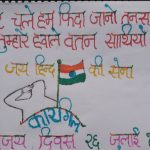 चले हम फिदा जानो तन स
तुम्हारे हवाले वतन साथियो
जय हिन्द की सेना
कारगिल
जय दिवस २६ जुलाई